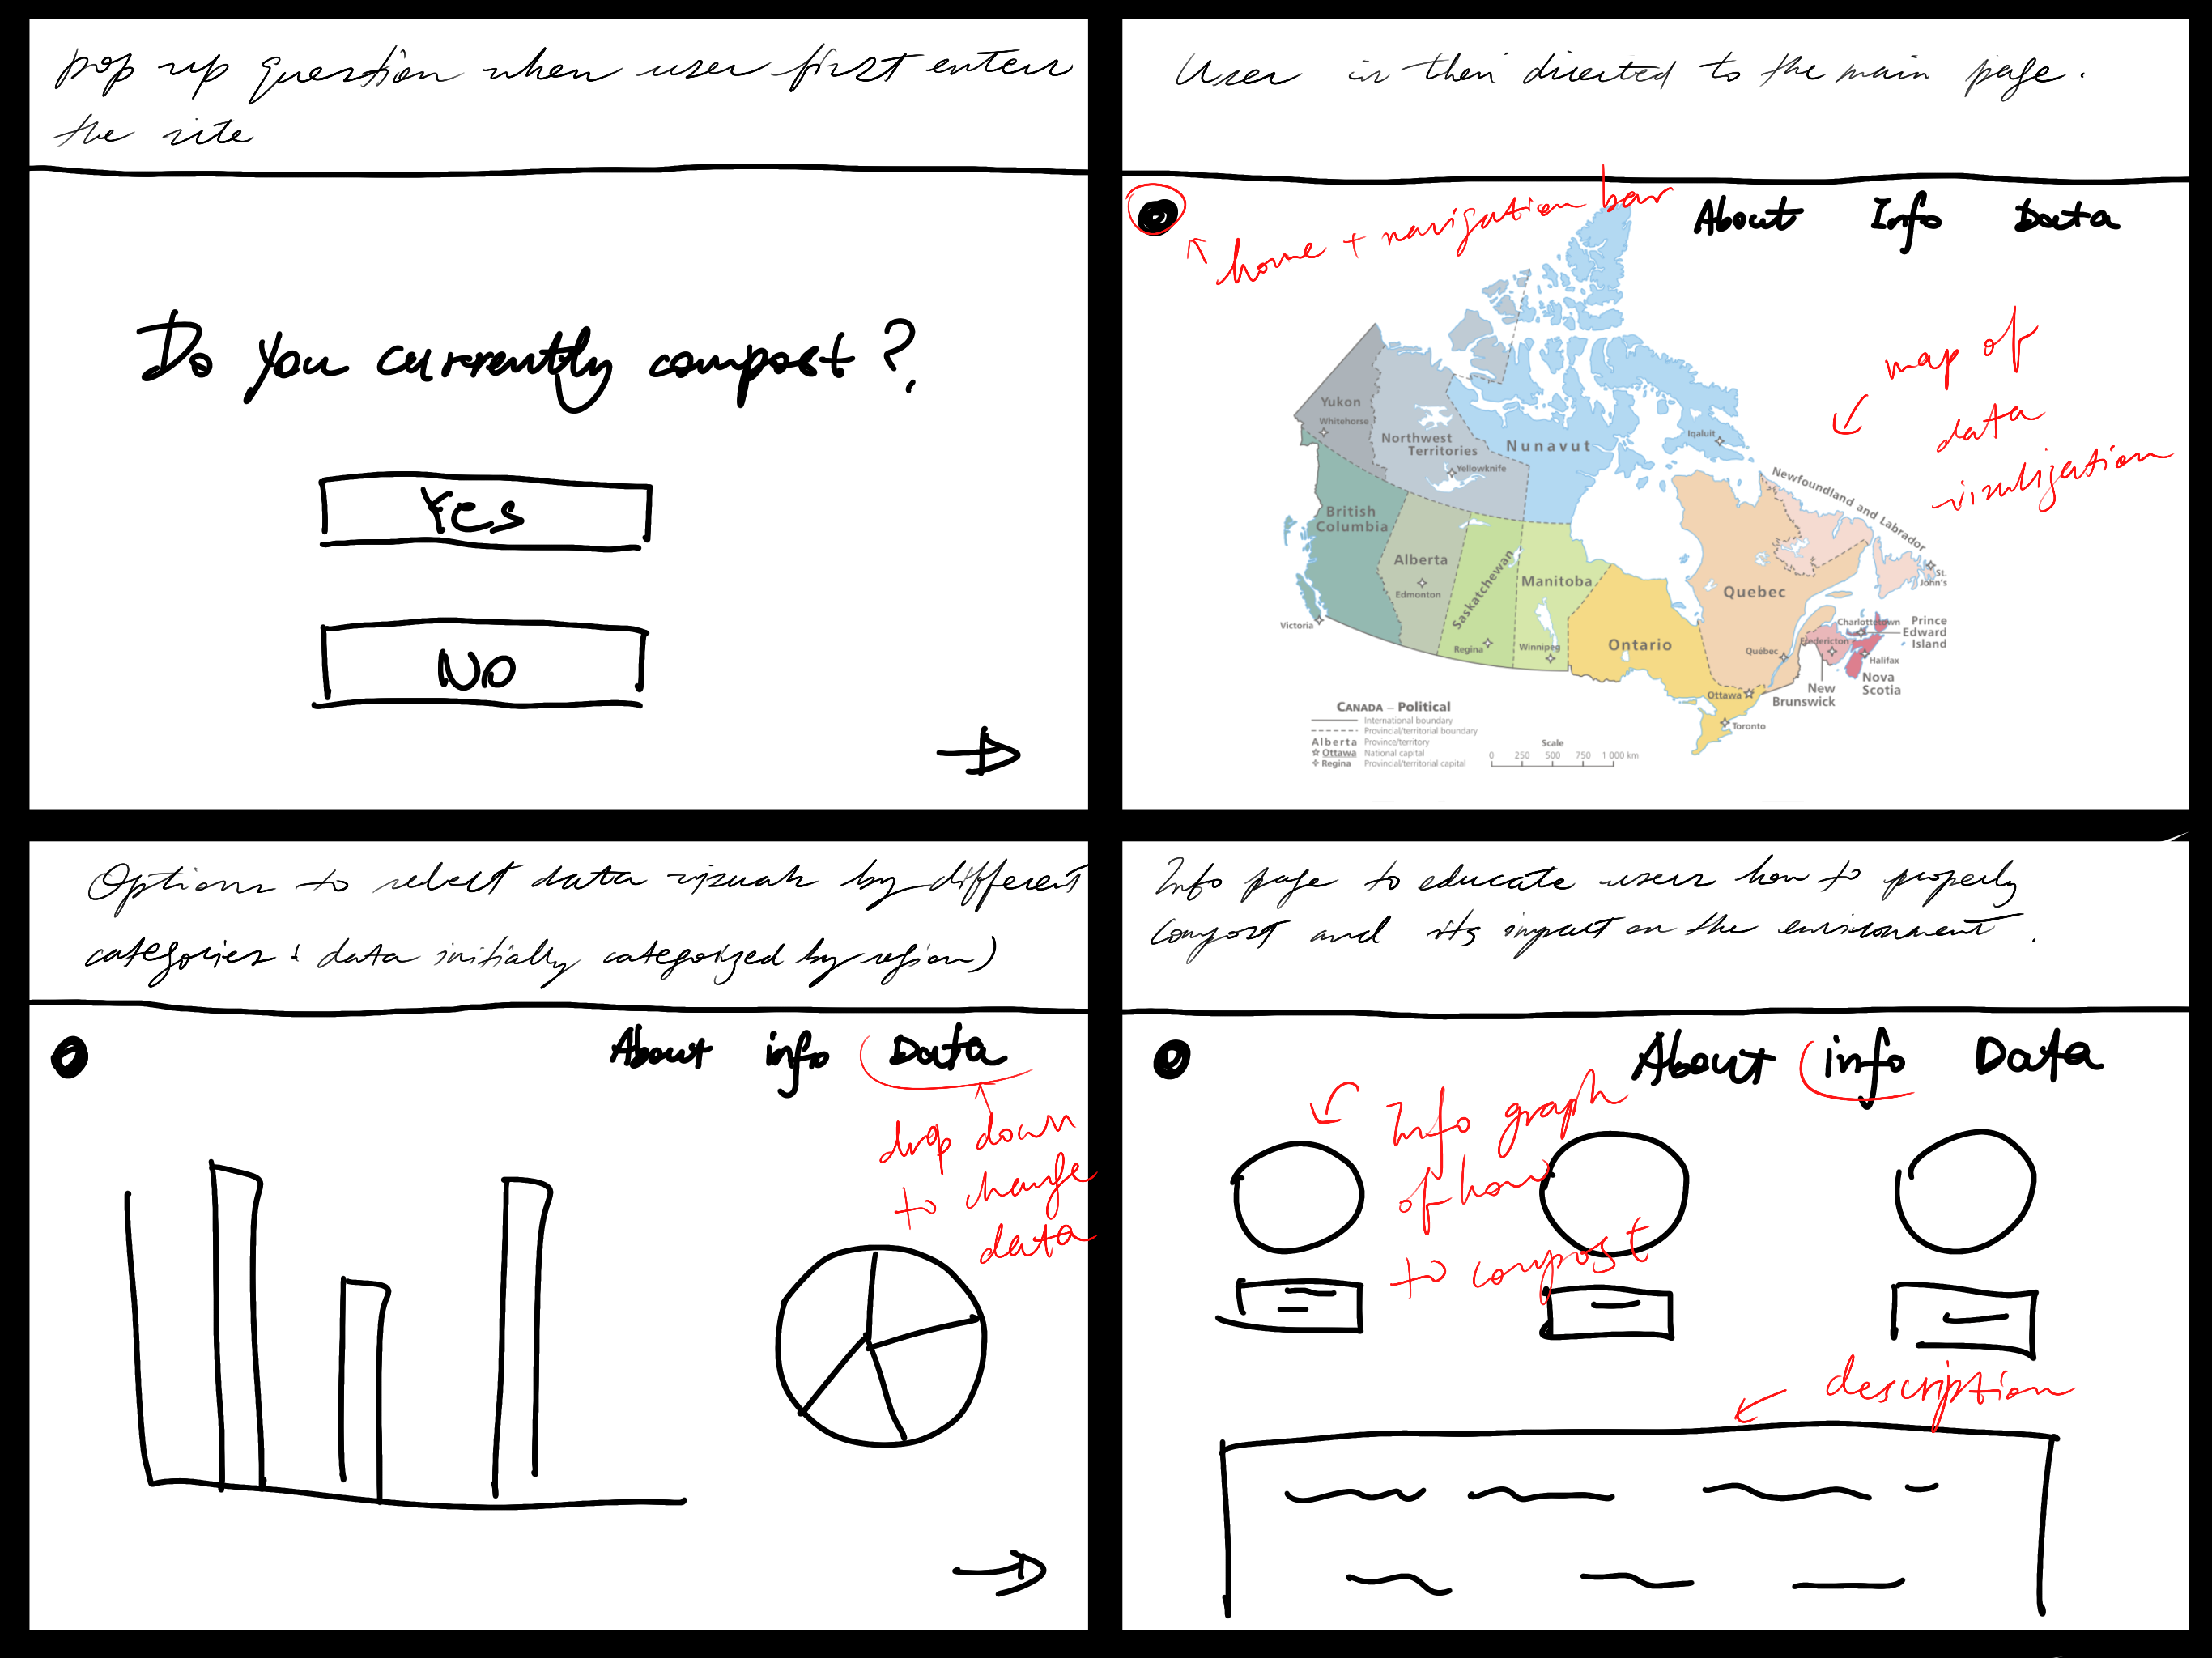 pop up question when user first enters
the site
Do you currently compost?
Yes
No
User is then directed to the main page.
home + navigation bar
About Info Data
map of
data
visulization
Yukon
Whitehorse
Northwest
Territories
Yellowknife
Nunavut
Iqaluit
British
Columbia
Victoria
Alberta
Edmonton
Saskatchewan
Regina
Manitoba
Winnipeg
Ontario
Ottawa
Toronto
Quebec
Québec
Newfoundland and Labrador
St.
John's
Charlottetown
Prince
Edward
Island
Fredericton
Halifax
Nova
Scotia
New
Brunswick
CANADA – Political
International boundary
Provincial/territorial boundary
Alberta Province/territory
Ottawa National capital
Regina Provincial/territorial capital
Scale
0 250 500 750 1 000 km
Options to select data visuals by different
categories ( data initially categorized by region)
About info Data
drop down
to change
data
Info page to educate users how to properly
compost and its impact on the environment.
About info Data
Info graph
of how
to compost
description